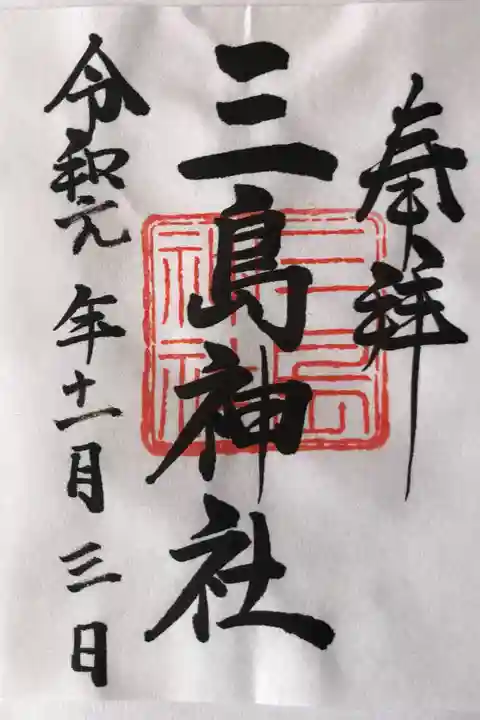 奉拜
三島神社
三島神社
令和元年十一月三日